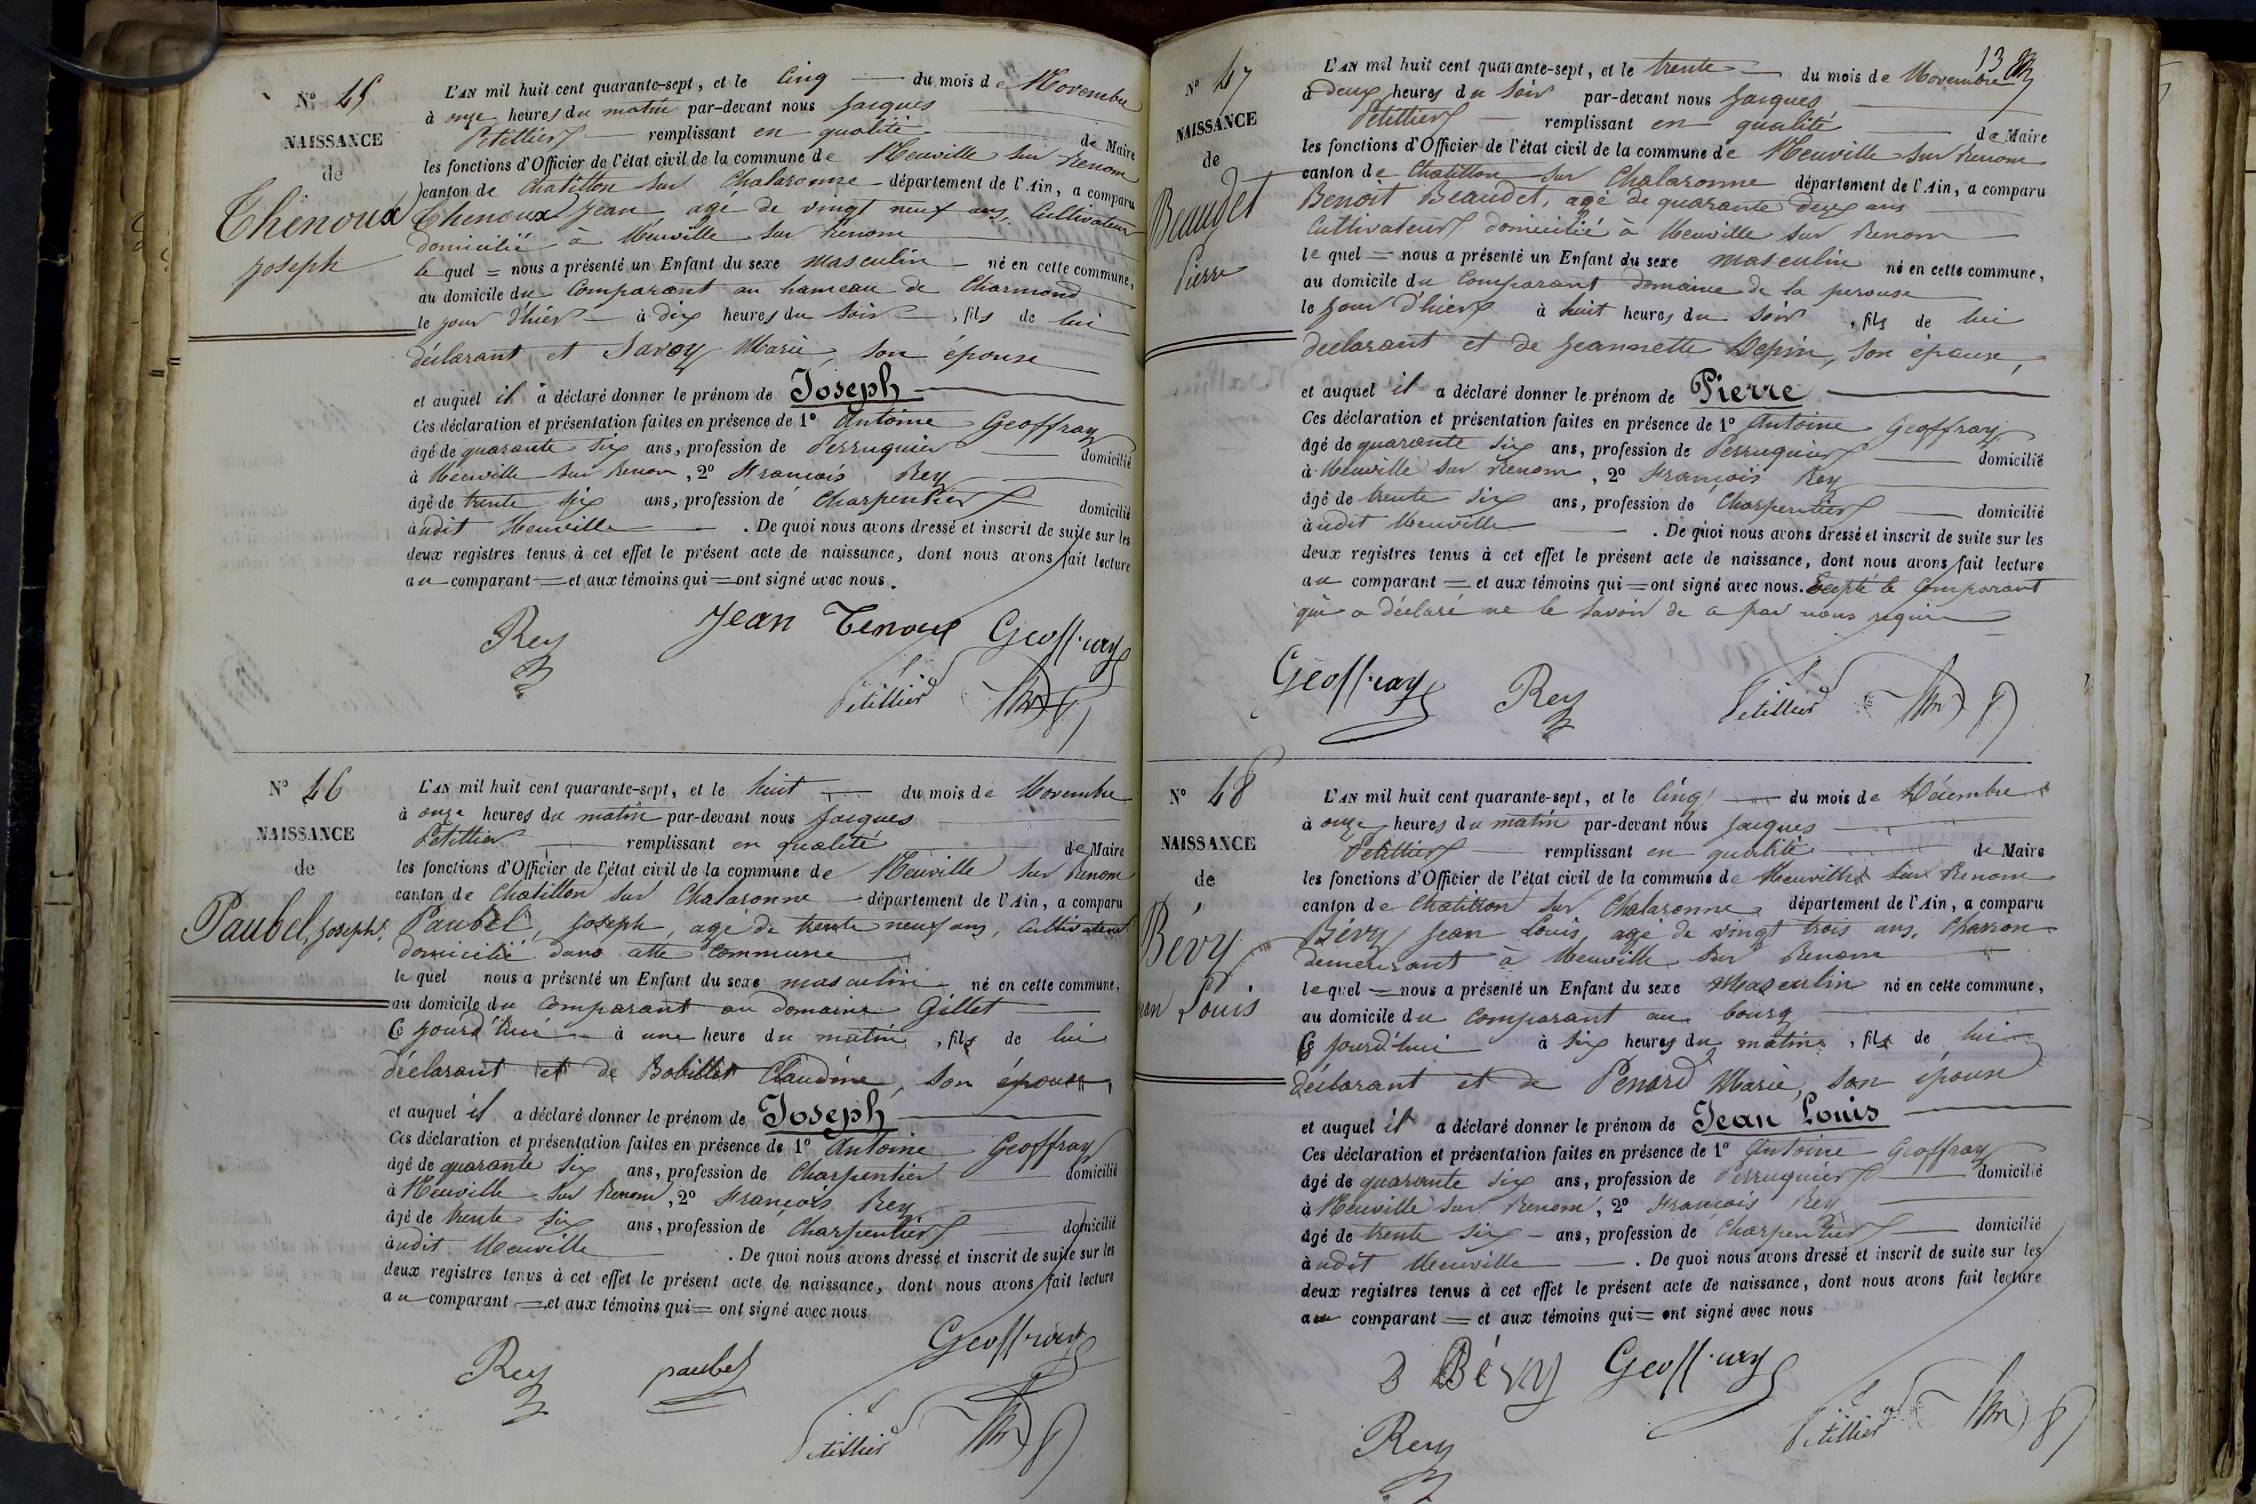 N° 45
NAISSANCE
de
Thenoux
Joseph
L'AN mil huit cent quarante-sept, et le cinq du mois de Novembre
à onze heures du matin par-devant nous Jacques
Petillier remplissant en qualité de Maire
les fonctions d'Officier de l'état civil de la commune de Neuville sur Renom
canton de Chatillon sur Chalaronne département de l'Ain, a comparu
Thenoux Jean agé de vingt neuf ans, Cultivateur
domicilié à Neuville sur Renom
le quel = nous a présenté un Enfant du sexe masculin né en cette commune,
au domicile du Comparant au hameau de Charmond
le jour d'hier à dix heures du soir, fils de lui
déclarant et Savoy Marie, son épouse
et auquel il a déclaré donner le prénom de Joseph
Ces déclaration et présentation faites en présence de 1° Antoine Geoffray
âgé de quarante six ans, profession de Perruquier domicilié
à Neuville sur Renom, 2° François Rey
âgé de trente six ans, profession de Charpentier domicilié
audit Neuville. De quoi nous avons dressé et inscrit de suite sur les
deux registres tenus à cet effet le présent acte de naissance, dont nous avons fait lecture
au comparant = et aux témoins qui = ont signé avec nous.
Rey Jean Tenoux Geoffray
Petillier
N° 46
NAISSANCE
de
Paubel, Joseph.
L'AN mil huit cent quarante-sept, et le huit du mois de Novembre
à onze heures du matin par-devant nous Jacques
Petillier remplissant en qualité de Maire
les fonctions d'Officier de l'état civil de la commune de Neuville sur Renom
canton de Chatillon sur Chalaronne département de l'Ain, a comparu
Paubel, Joseph, agé de trente neuf ans, Cultivateur
domicilié dans cette commune
le quel nous a présenté un Enfant du sexe masculin né en cette commune,
au domicile du comparant au domaine Gillet
Ce jourd'hui à une heure du matin, fils de lui
déclarant et de Bobillet Claudine, son épouse,
et auquel il a déclaré donner le prénom de Joseph
Ces déclaration et présentation faites en présence de 1° Antoine Geoffray
âgé de quarante six ans, profession de Charpentier domicilié
à Neuville sur Renom, 2° François Rey
âgé de trente six ans, profession de Charpentier domicilié
audit Neuville. De quoi nous avons dressé et inscrit de suite sur les
deux registres tenus à cet effet le présent acte de naissance, dont nous avons fait lecture
au comparant = et aux témoins qui = ont signé avec nous
Rey paubel Geoffray
Petillier
13
N° 47
NAISSANCE
de
Beaudet
Pierre
L'AN mil huit cent quarante-sept, et le trente du mois de Novembre
à deux heures du soir par-devant nous Jacques
Petillier remplissant en qualité de Maire
les fonctions d'Officier de l'état civil de la commune de Neuville sur Renom
canton de Chatillon sur Chalaronne département de l'Ain, a comparu
Benoit Beaudet, agé de quarante deux ans
Cultivateur domicilié à Neuville sur Renom
le quel = nous a présenté un Enfant du sexe masculin né en cette commune,
au domicile du Comparant domaine de la perouse
le jour d'hier à huit heures du soir, fils de lui
déclarant et de Jeannette Depin, son épouse,
et auquel il a déclaré donner le prénom de Pierre
Ces déclaration et présentation faites en présence de 1° Antoine Geoffray
âgé de quarante six ans, profession de Perruquier domicilié
à Neuville sur Renom, 2° François Rey
âgé de trente six ans, profession de Charpentier domicilié
audit Neuville. De quoi nous avons dressé et inscrit de suite sur les
deux registres tenus à cet effet le présent acte de naissance, dont nous avons fait lecture
au comparant = et aux témoins qui = ont signé avec nous. Excepté le Comparant
qui a déclaré ne le savoir de a par nous requis
Geoffray Rey Petillier
N° 48
NAISSANCE
de
Bévy
Jean Louis
L'AN mil huit cent quarante-sept, et le cinq du mois de Décembre
à onze heures du matin par-devant nous Jacques
Petillier remplissant en qualité de Maire
les fonctions d'Officier de l'état civil de la commune de Neuville sur Renom
canton de Chatillon sur Chalaronne département de l'Ain, a comparu
Bévy Jean Louis, agé de vingt trois ans, Charron
demeurant à Neuville sur Renom
lequel = nous a présenté un Enfant du sexe Masculin né en cette commune,
au domicile du Comparant au bourg
Ce jourd'hui à six heures du matin, fils de lui
déclarant et de Penard Marie, son épouse
et auquel il a déclaré donner le prénom de Jean Louis
Ces déclaration et présentation faites en présence de 1° Antoine Geoffray
âgé de quarante six ans, profession de Perruquier domicilié
à Neuville sur Renom, 2° François Rey
âgé de trente six ans, profession de Charpentier domicilié
audit Neuville. De quoi nous avons dressé et inscrit de suite sur les
deux registres tenus à cet effet le présent acte de naissance, dont nous avons fait lecture
au comparant = et aux témoins qui = ont signé avec nous
Bévy Geoffray
Rey Petillier